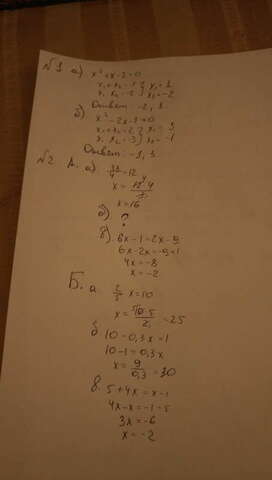 №1 а) x²+x-2=0
x₁+x₂=-1 } x₁=1
x₁ x₂=-2 } x₂=-2
Ответ: -2, 1
б) x²-2x-3=0
x₁+x₂=2 } x₁=3
x₁ x₂=-3 } x₂=-1
Ответ: -1, 3
№2 А. а) 3x/4=12
x=12·4/3
x=16
б) ?
в) 6x-1=2x-9
6x-2x=-9+1
4x=-8
x=-2
Б. а. 2/5 x=10
x=10·5/2=25
б 10-0,3x=1
10-1=0,3x
x=9/0,3=30
в. 5+4x=x-1
4x-x=-1-5
3x=-6
x=-2